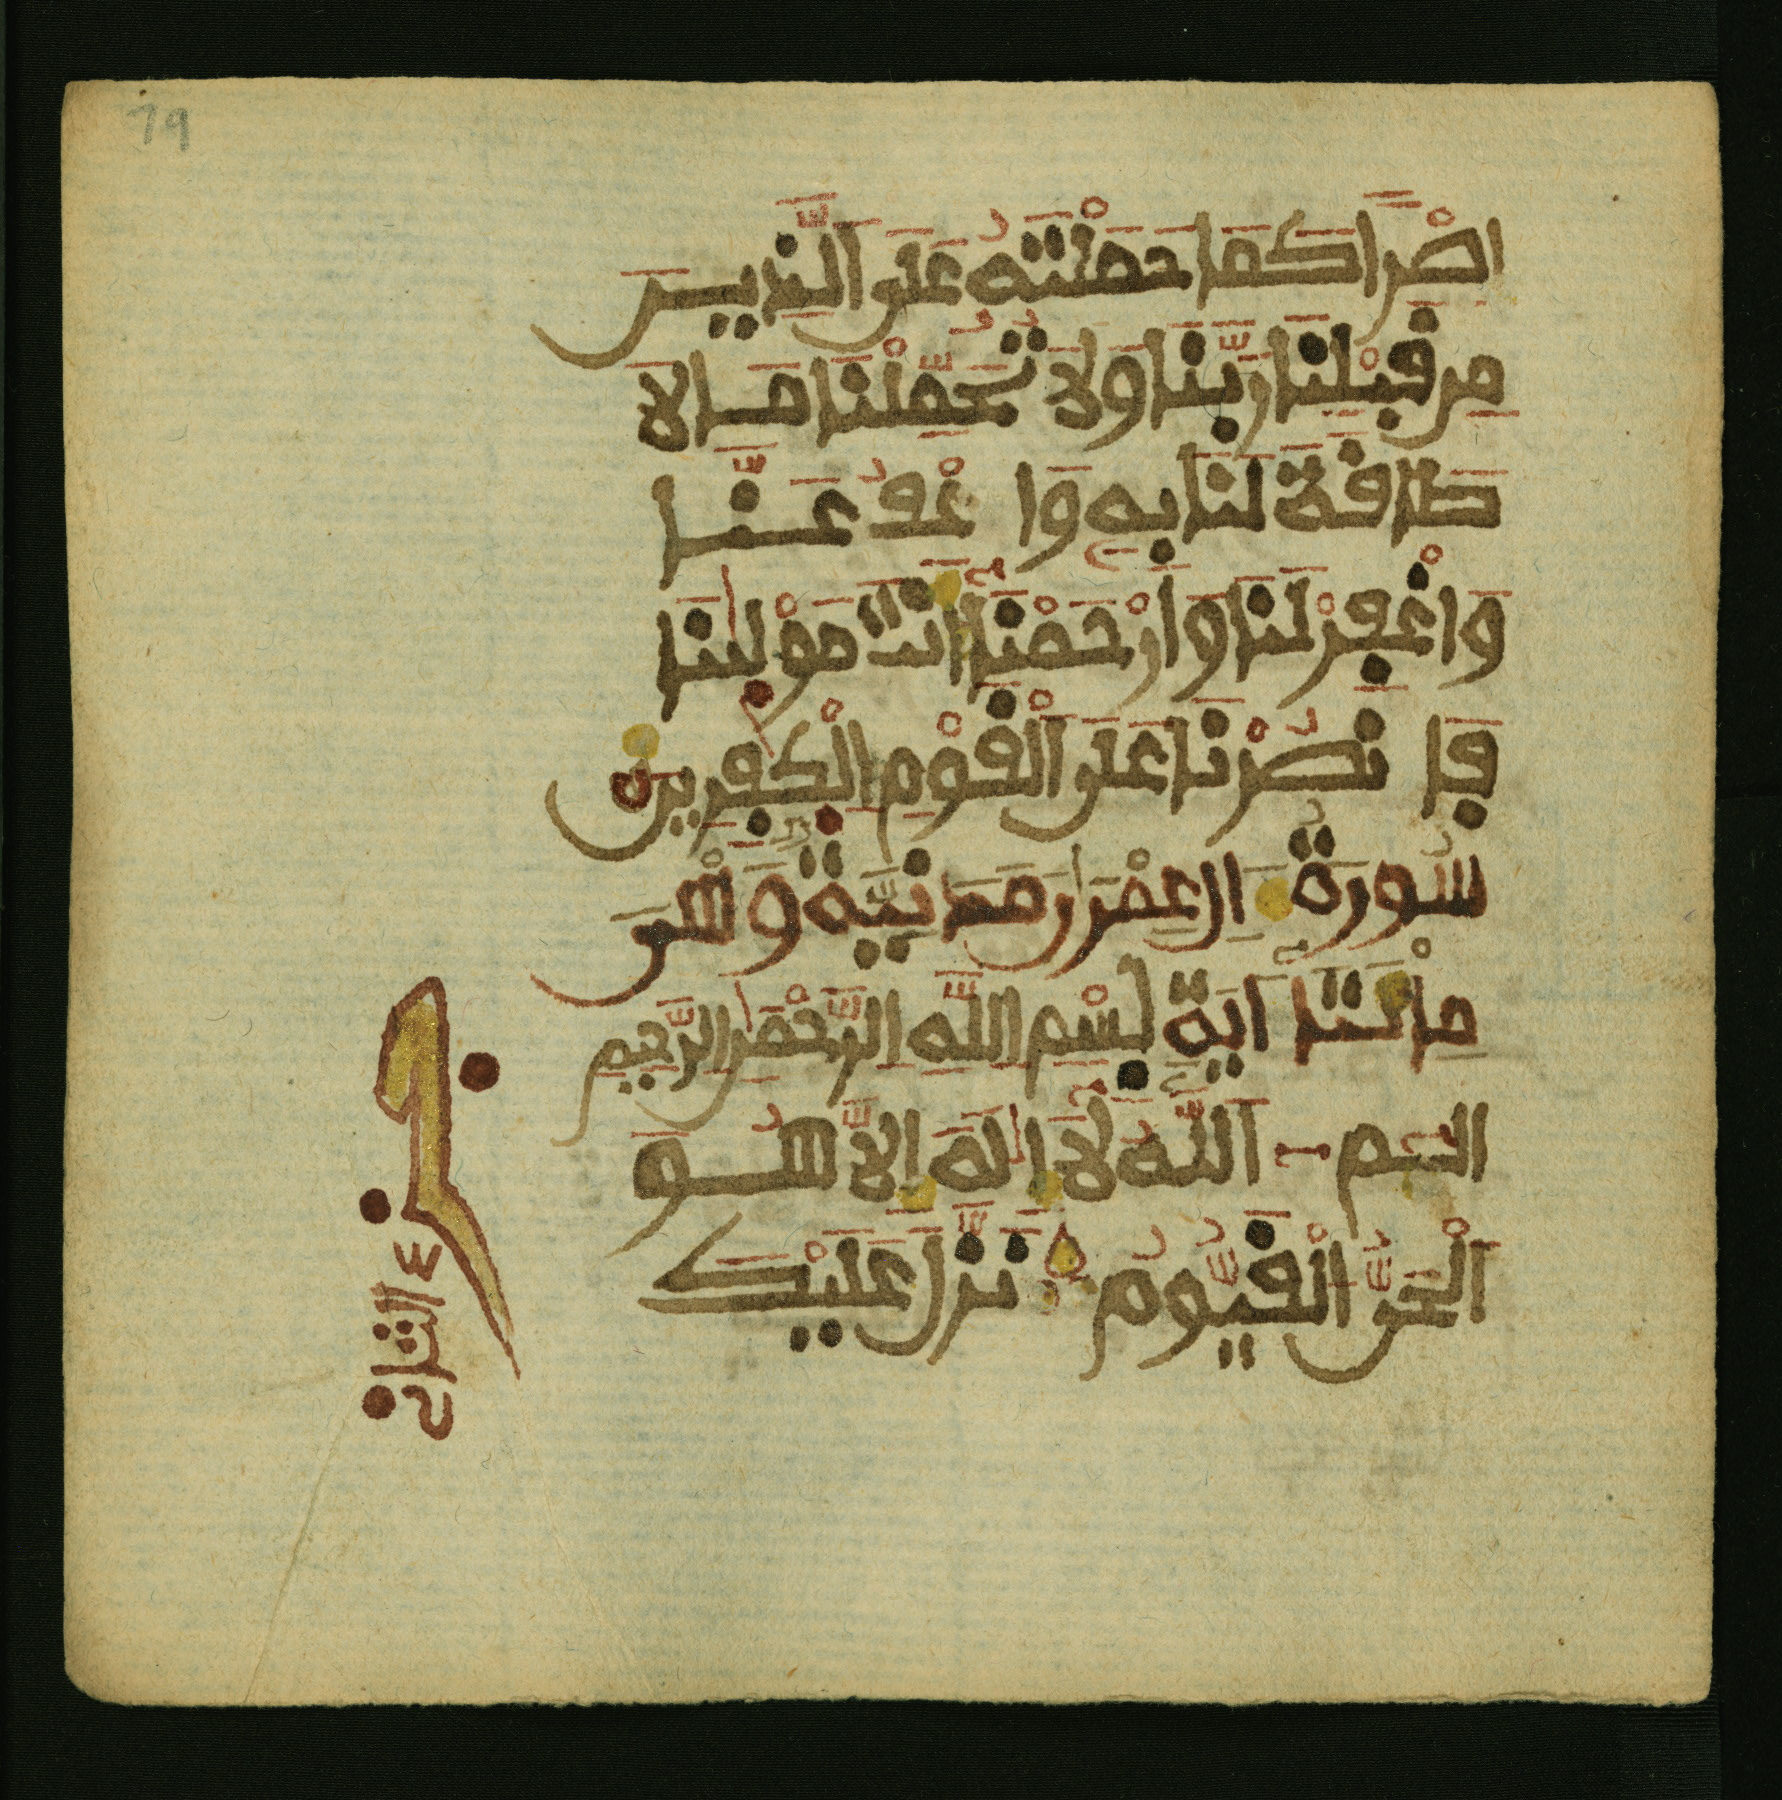 79
إِصْرًا كَمَا حَمَلْتَهُ عَلَى ٱلَّذِينَ
مِن قَبْلِنَا رَبَّنَا وَلَا تُحَمِّلْنَا مَا لَا
طَاقَةَ لَنَا بِهِ وَاعْفُ عَنَّا
وَاغْفِرْ لَنَا وَارْحَمْنَا أَنتَ مَوْلَىٰنَا
فَانصُرْنَا عَلَى الْقَوْمِ الْكَٰفِرِينَ
سُورَةُ اِلِ عِمْرَانَ مَدَنِيَّةٌ وَهْىَ
مِائَتَا ايَةٍ بِسْمِ اللَّهِ الرَّحْمَٰنِ الرَّحِيمِ
الٓمٓ اَللَّهُ لَا إِلَٰهَ إِلَّا هُوَ
اَلْحَىُّ الْقَيُّومُ نَزَّلَ عَلَيْكَ